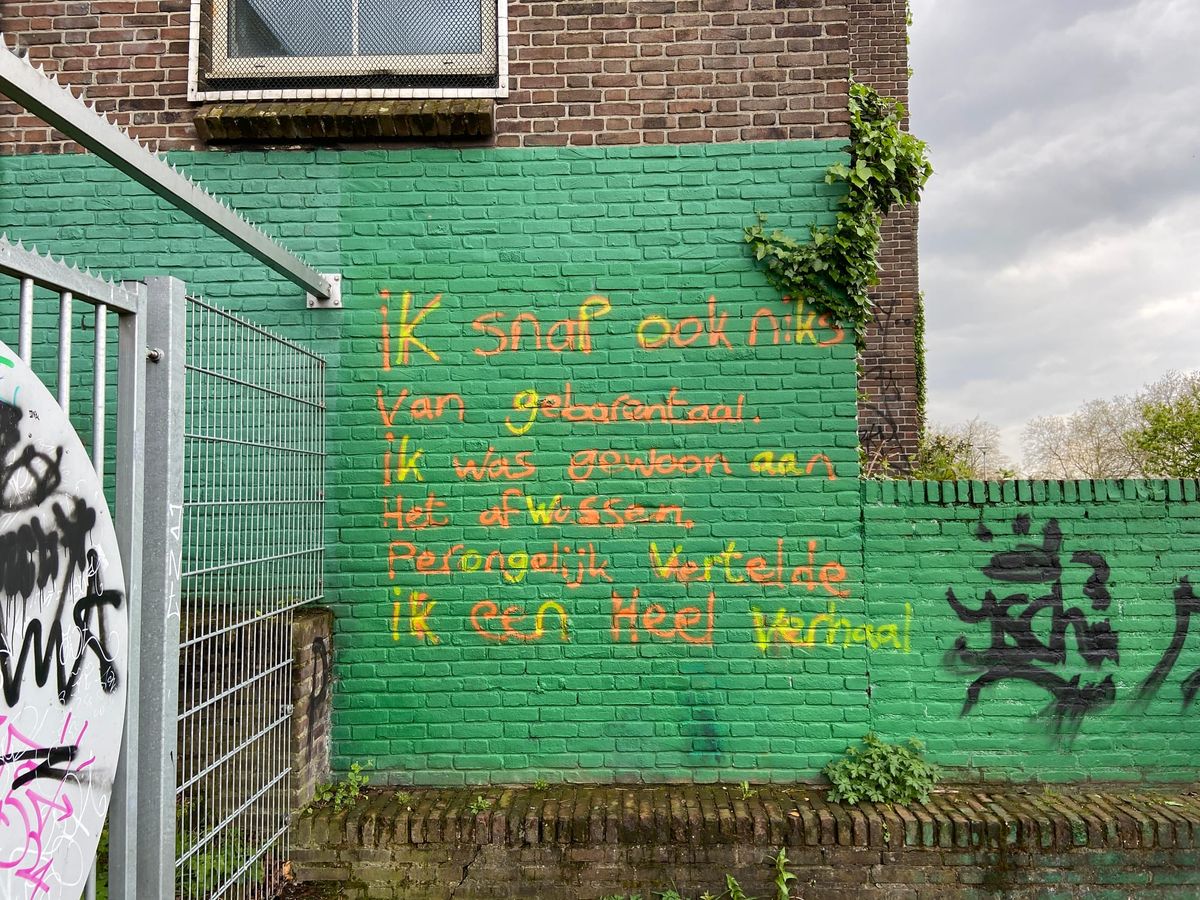 iK snap ook niks
Van gebarentaal.
ik was gewoon aan
Het afWassen.
Perongelijk Vertelde
ik een Heel Verhaal